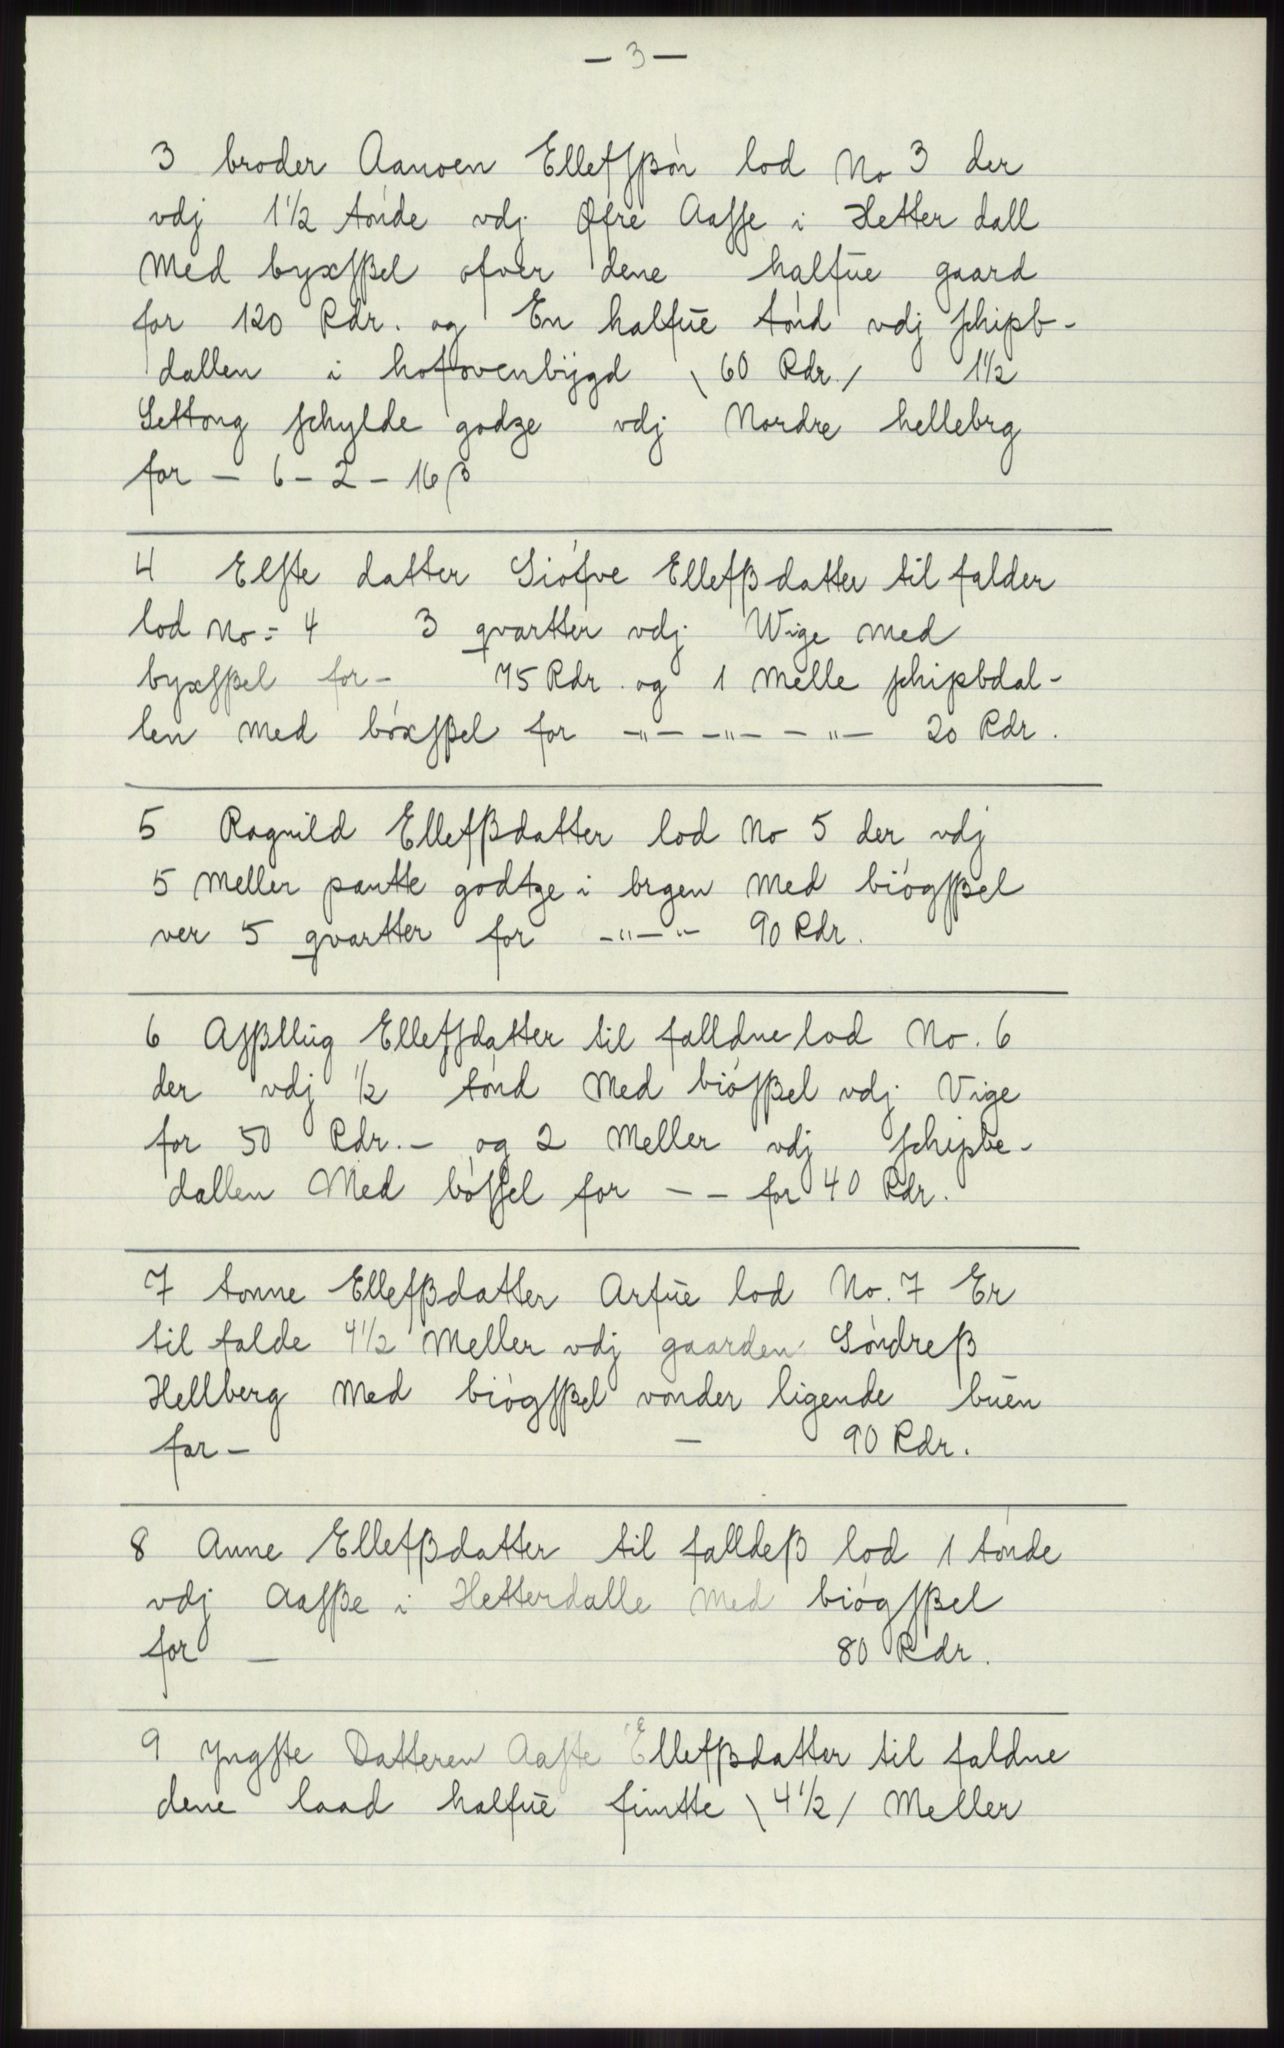 — 3 —
3 broder Aanoen Ellefſßón lod No 3 der
vdj 1½ tónde vdj. Øfre Aaſſe i Hetter dall
Med byxſßel ofver dene halfūe gaard
for 120 Rdr. og En halfūe tónd vdj ſchipb-
dallen i hofovenbijgd \ 60 Rdr. / 1½
Settong ſchylde godze vdj Nordre hellebrg
for — 6 — 2 — 16 β
4 Elſte datter Siófve Ellefßdatter til falder
lod No = 4 3 qvartter vdj. Wige med
byxſßel for — 75 Rdr. og 1 Melle ſchipbdal-
len med bóxſßel for —"— —"— — "— 20 Rdr.
5 Ragnild Ellefßdatter lod No 5 der vdj
5 Meller pantte godtze i brgen Med biógſßel
ver 5 qvartter for —"—"— 90 Rdr.
6 Aſßllūg Ellefſdatter til falldne lod No. 6
der vdj ½ tónd Med bióſßel vdj. Vige
for 50 Rdr. — og 2 Meller vdj ſchipbe-
dallen Med bóſſel for — — for 40 Rdr.
7 tonne Ellefßdatter Arfūe lod No. 7 Er
til falde 4½ Meller vdj gaarden Sóndreß
Hellberg Med biógſßel vonder ligende būen
for — — 90 Rdr.
8 Anne Ellefßdatter til falldeß lod 1 tónde
vdj Aaſße i Hetterdalle Med biógſßel
for — 80 Rdr.
9 yngſte Datteren Aaſte Ellefßdatter til faldne
dene laad halfūe fimtte \ 4½ / Meller